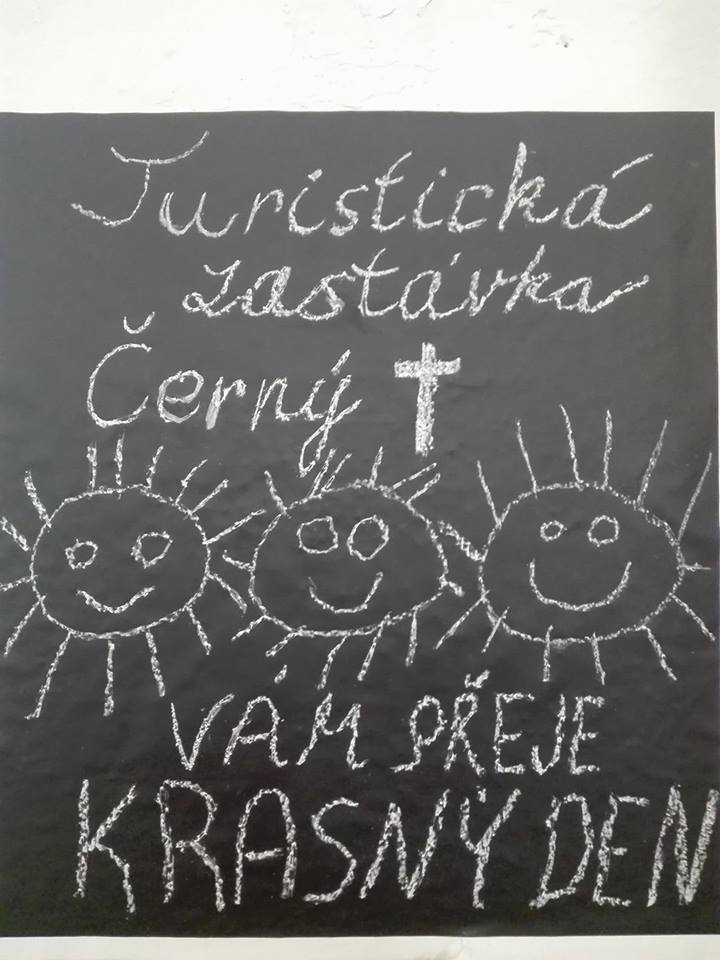 Turistická
zastávka
Černý
VÁM PŘEJE
KRASNÝ DEN